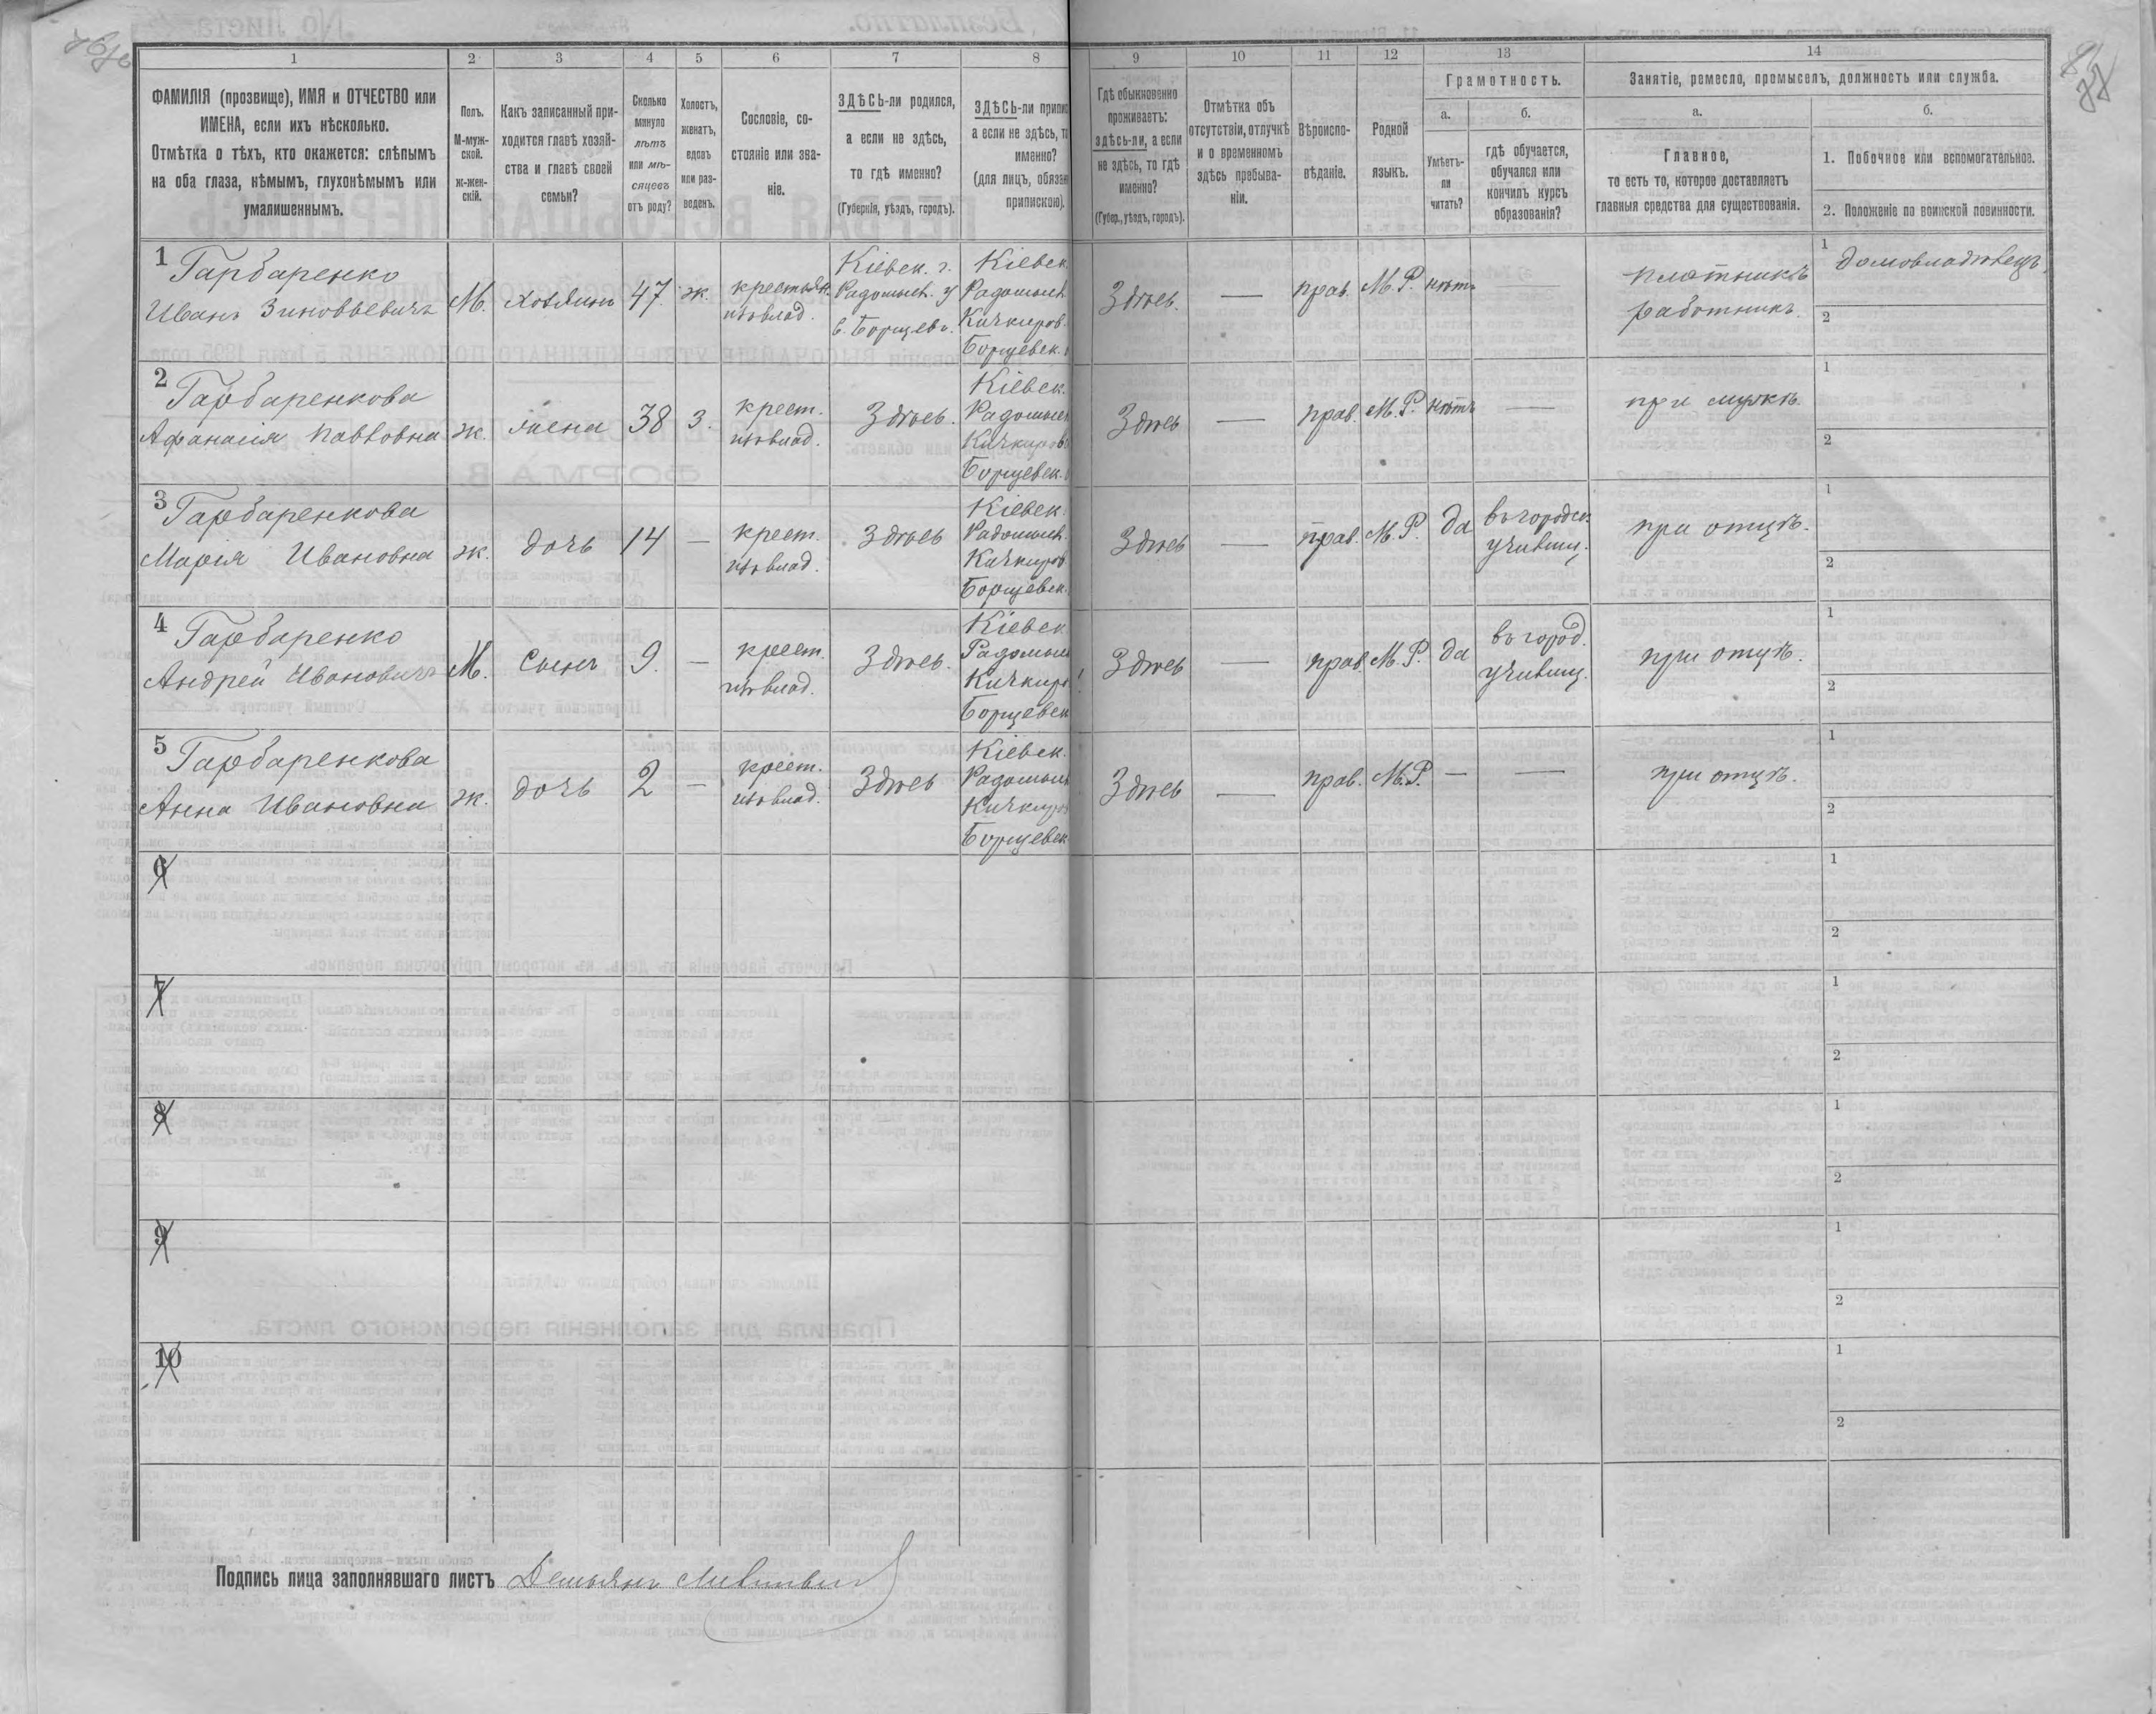 1 2 3 4 5 6 7 8 9 10 11 12 13 14
ФАМИЛІЯ (прозвище), ИМЯ и ОТЧЕСТВО или
ИМЕНА, если ихъ нѣсколько.
Отмѣтка о тѣхъ, кто окажется: слѣпымъ
на оба глаза, нѣмымъ, глухонѣмымъ или
умалишеннымъ.
Полъ.
М-муж-
ской.
ж-жен-
скій.
Какъ записанный при-
ходится главѣ хозяй-
ства и главѣ своей
семьи?
Сколько
минуло
лѣтъ
или мѣ-
сяцевъ
отъ роду?
Холостъ,
женатъ,
вдовъ
или раз-
веденъ.
Сословіе, со-
стояніе или зва-
ніе.
ЗДѢСЬ-ли родился,
а если не здѣсь,
то гдѣ именно?
(Губернія, уѣздъ, городъ).
ЗДѢСЬ-ли припи
а если не здѣсь, т
именно?
(для лицъ, обяза
припискою).
Гдѣ обыкновенно
проживаетъ:
здѣсь-ли, а если
не здѣсь, то гдѣ
именно?
(Губер., уѣздъ, городъ).
Отмѣтка объ
отсутствіи, отлучкѣ
и о временномъ
здѣсь пребыва-
ніи.
Вѣроиспо-
вѣданіе.
Родной
языкъ.
Грамотность.
а.
Умѣетъ-
ли
читать?
б.
гдѣ обучается,
обучался или
кончилъ курсъ
образованія?
Занятіе, ремесло, промыселъ, должность или служба.
а.
Главное,
то есть то, которое доставляетъ
главныя средства для существованія.
б.
1. Побочное или вспомогательное.
2. Положеніе по воинской повинности.
1 Гарбаренко
Иванъ Зиновьевичъ
М.
хозяинъ
47
ж.
крестьян.
Кіевск. г.
Радомысл. у
с. Борщев
Кіевск.
Радомысл.
Кичкиров.
Борщевск.
Здѣсь.
—
прав.
М. Р.
нѣтъ
—
плотникъ
работникъ.
1 домовладѣлецъ.
2
2 Гарбаренкова
Афанасія Павловна
ж.
жена
38
з.
крест.
Здѣсь.
Кіевск.
Радомысл
Кичкиров
Борщевск.
Здѣсь
—
прав.
М. Р.
нѣтъ
—
при мужѣ.
1
2
3 Гарбаренкова
Марія Ивановна
ж.
дочь
14
—
крест.
Здѣсь
Кіевск.
Радомысл.
Кичкиров
Борщевск.
Здѣсь
—
прав.
М. Р.
да
въ городск.
училищ.
при отцѣ.
1
2
4 Гарбаренко
Андрей Ивановичъ
М.
Сынъ
9.
—
крест.
Здѣсь.
Кіевск
Радомысл
Кичкиро
Борщевск
Здѣсь
—
прав.
М. Р.
да
въ город.
училищ.
при отцѣ.
1
2
5 Гарбаренкова
Анна Ивановна
ж.
дочь
2
—
крест.
Здѣсь
Кіевск.
Радомысл
Кичкиров
Борщевск
Здѣсь
—
прав.
М. Р.
—
—
при отцѣ.
1
2
6
1
2
7
1
2
8
1
2
9
1
2
10
1
2
Подпись лица заполнявшаго листъ Демьянъ